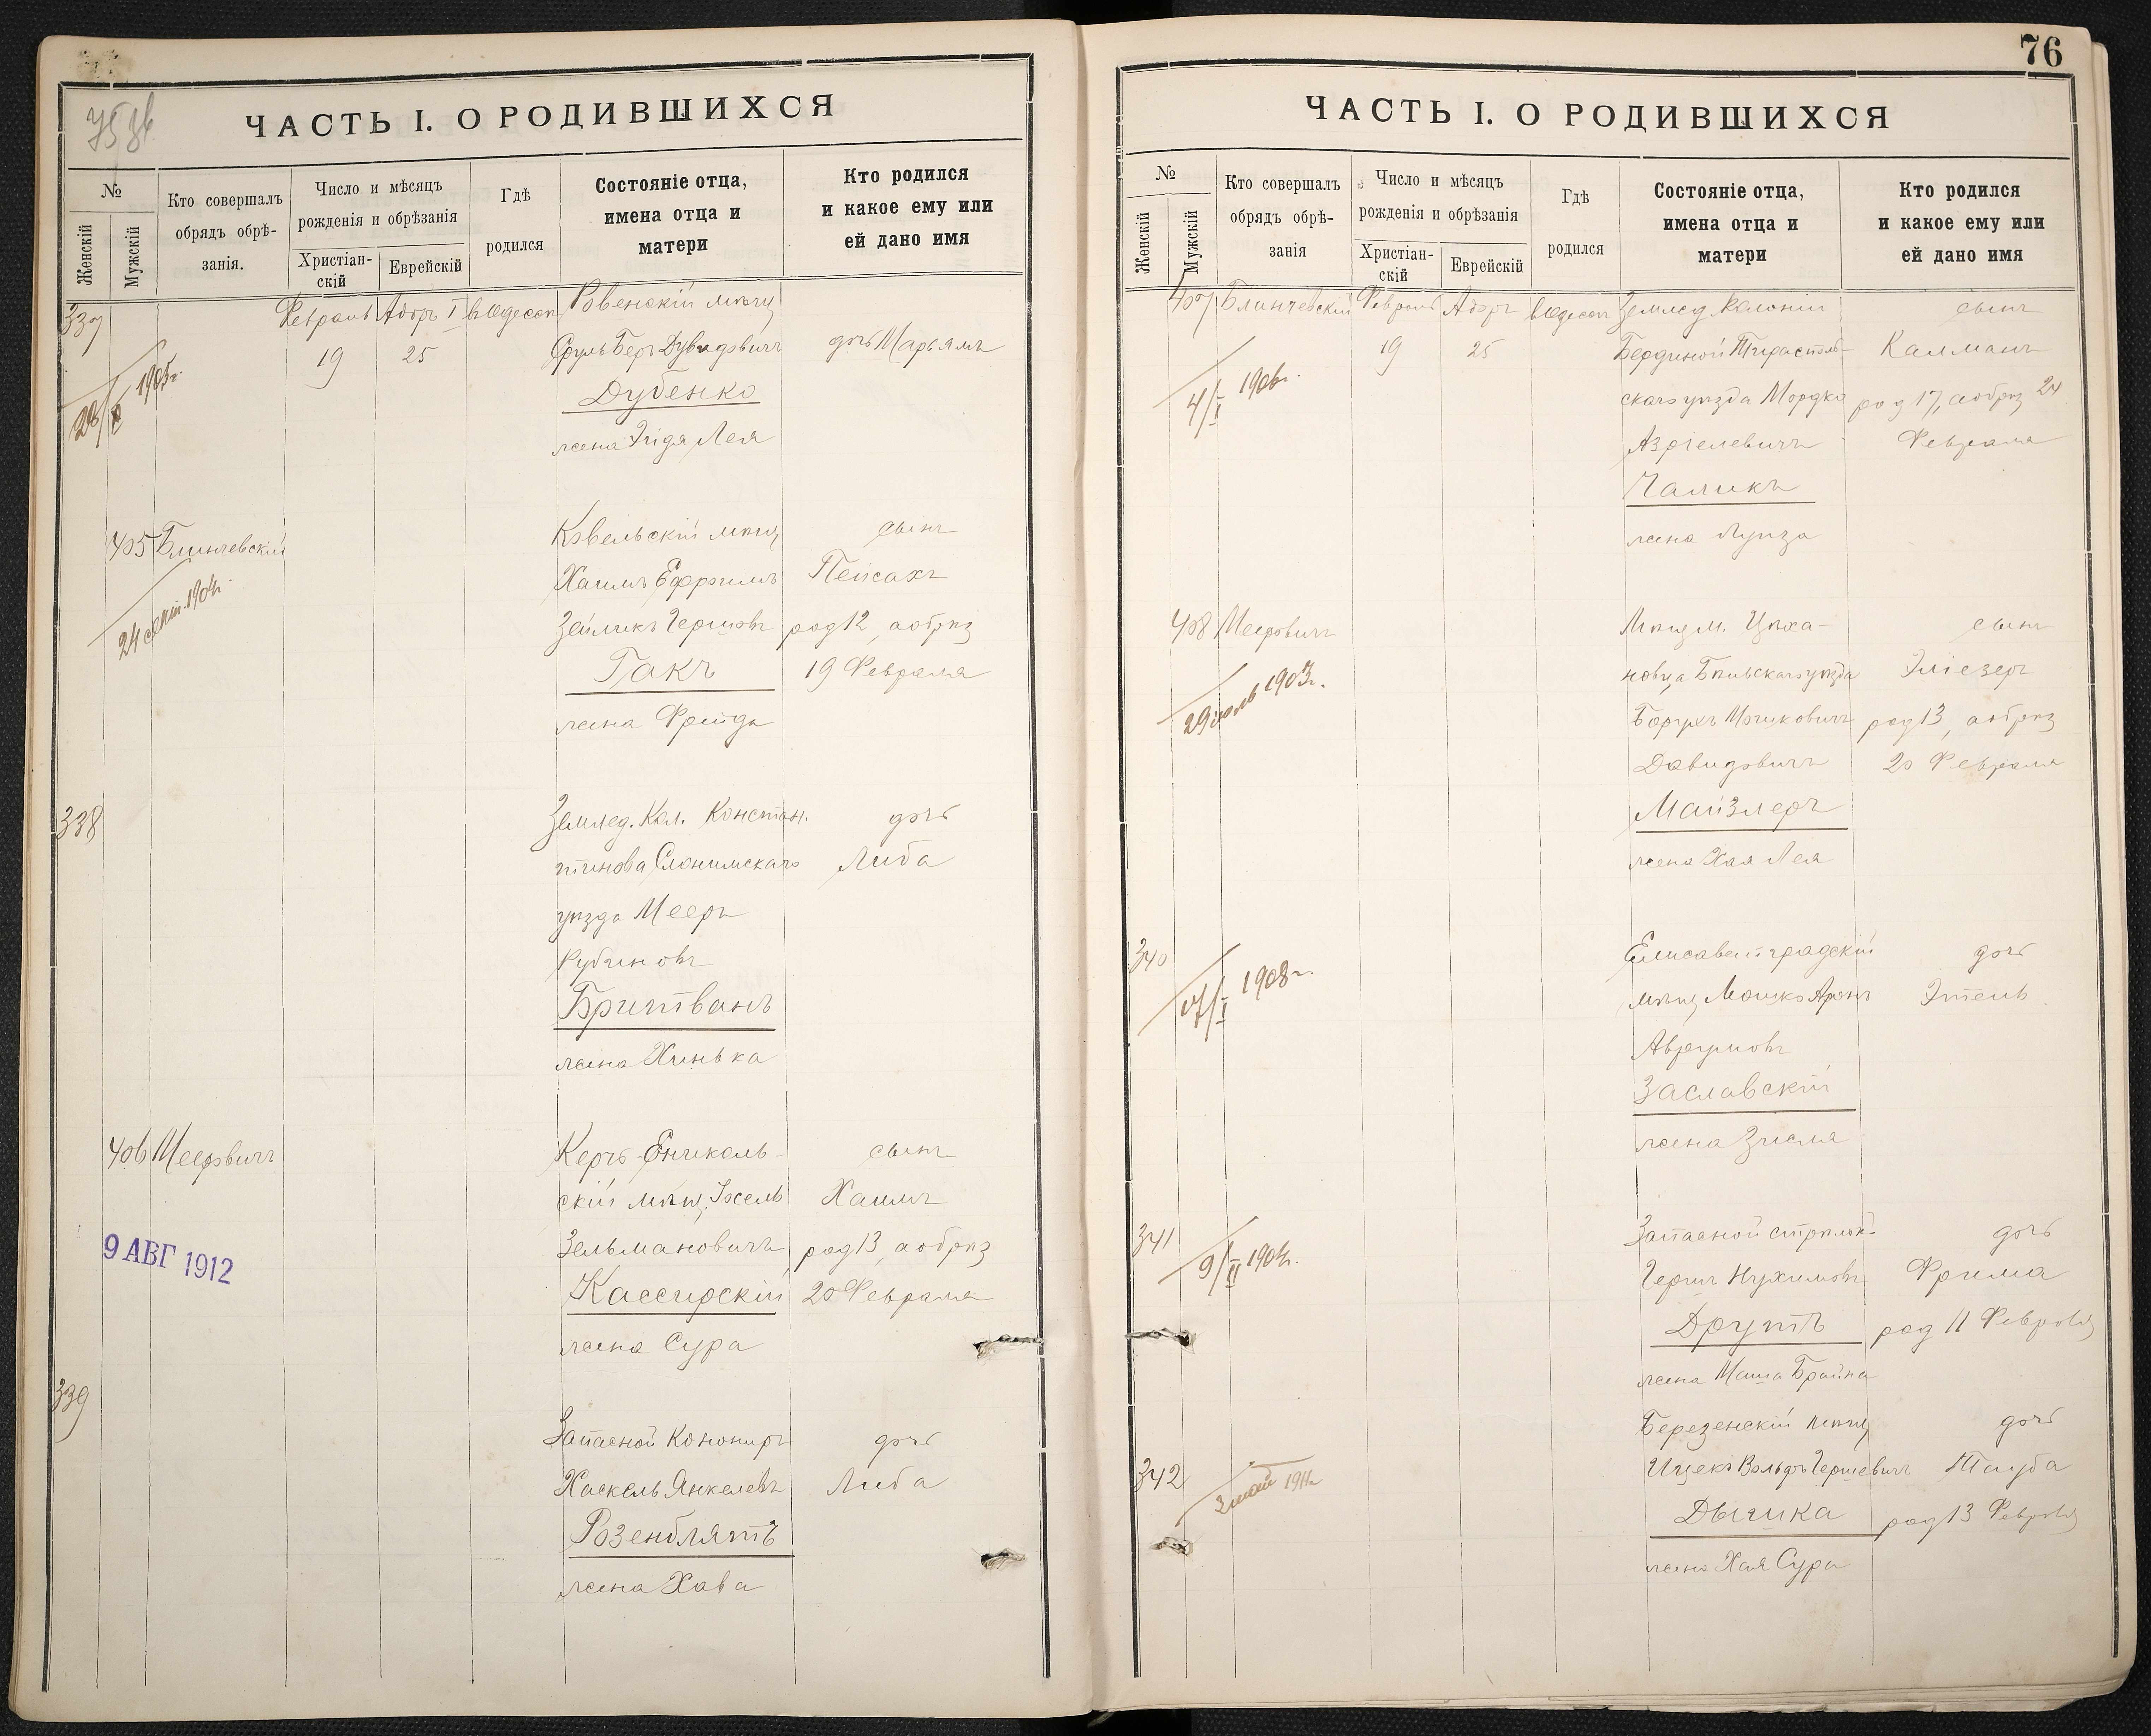 75 об.
ЧАСТЬ I. О РОДИВШИХСЯ
№
Женскій
Мужскій
Кто совершалъ
обрядъ обрѣ-
занія.
Число и мѣсяцъ
рожденія и обрѣзанія
Христіан-
скій
Еврейскій
Гдѣ
родился
Состояніе отца,
имена отца и
матери
Кто родился
и какое ему или
ей дано имя
337
Февраль
19
Адоръ I
25
въ Одессѣ
Ровенскій мѣщ
Сруль Беръ Дувидовичъ
Дубенко
жена Энідя Лея
дочь Марьямъ
1905г.
405
Блинчевскій
24 сент. 1904г.
Ковельскій мѣщ
Хаимъ Ефроимъ
Зейликъ Гершовъ
Гакъ
жена Фрейда
сынъ
Пейсахъ
род 12, а обрѣз
19 Февраля
338
Землед. Кол. Констан.
тинова Слонимскаго
уѣзда Мееръ
Рубиновъ
Бритванъ
жена Хинька
дочь
Либа
406
Мееровичъ
9 АВГ 1912
Керчь-Еникель-
скій мѣщ. Іосель
Зельмановичъ
Кассирскій
жена Сура
сынъ
Хаимъ
род 13, а обрѣз
20 Февраля
339
Запасной Канониръ
Хаскель Янкелевъ
Розенблятъ
жена Хава
дочь
Либа
76
ЧАСТЬ I. О РОДИВШИХСЯ
№
Женскій
Мужскій
Кто совершалъ
обрядъ обрѣ-
занія
Число и мѣсяцъ
рожденія и обрѣзанія
Христіан-
скій
Еврейскій
Гдѣ
родился
Состояніе отца,
имена отца и
матери
Кто родился
и какое ему или
ей дано имя
407
Блинчевскій
4/I 1906г.
Февраль
19
Адоръ
25
въ Одессѣ
Землед Колоніи
Бердиной Тирасполь-
скаго уѣзда Мордко
Азріелевичъ
Чаликъ
жена Луиза
сынъ
Калманъ
род 17, а обрѣз 24
Февраля
408
Мееровичъ
29 іюль 1903г.
Мѣщ м. Цѣха-
новца Бѣльскаго уѣзда
Борухъ Мошковичъ
Давидовичъ
Майзлеръ
жена Хая Лея
сынъ
Эліезеръ
род 13, а обрѣз
20 Февраля
340
17/I 1908г.
Елисаветградскій
мѣщ Мошко Аронъ
Аврумовъ
Заславскій
жена Зисля
дочь
Этель
341
9/II 1904г.
Запасной стрѣлок.
Гершъ Нухимовъ
Друтъ
жена Маша Брайна
дочь
Фрима
род 11 Февраля
342
2 май 1911г.
Березенскій мѣщ
Ицекъ Вольфъ Гершевичъ
Дышка
жена Хая Сура
дочь
Тауба
род 13 Февраля